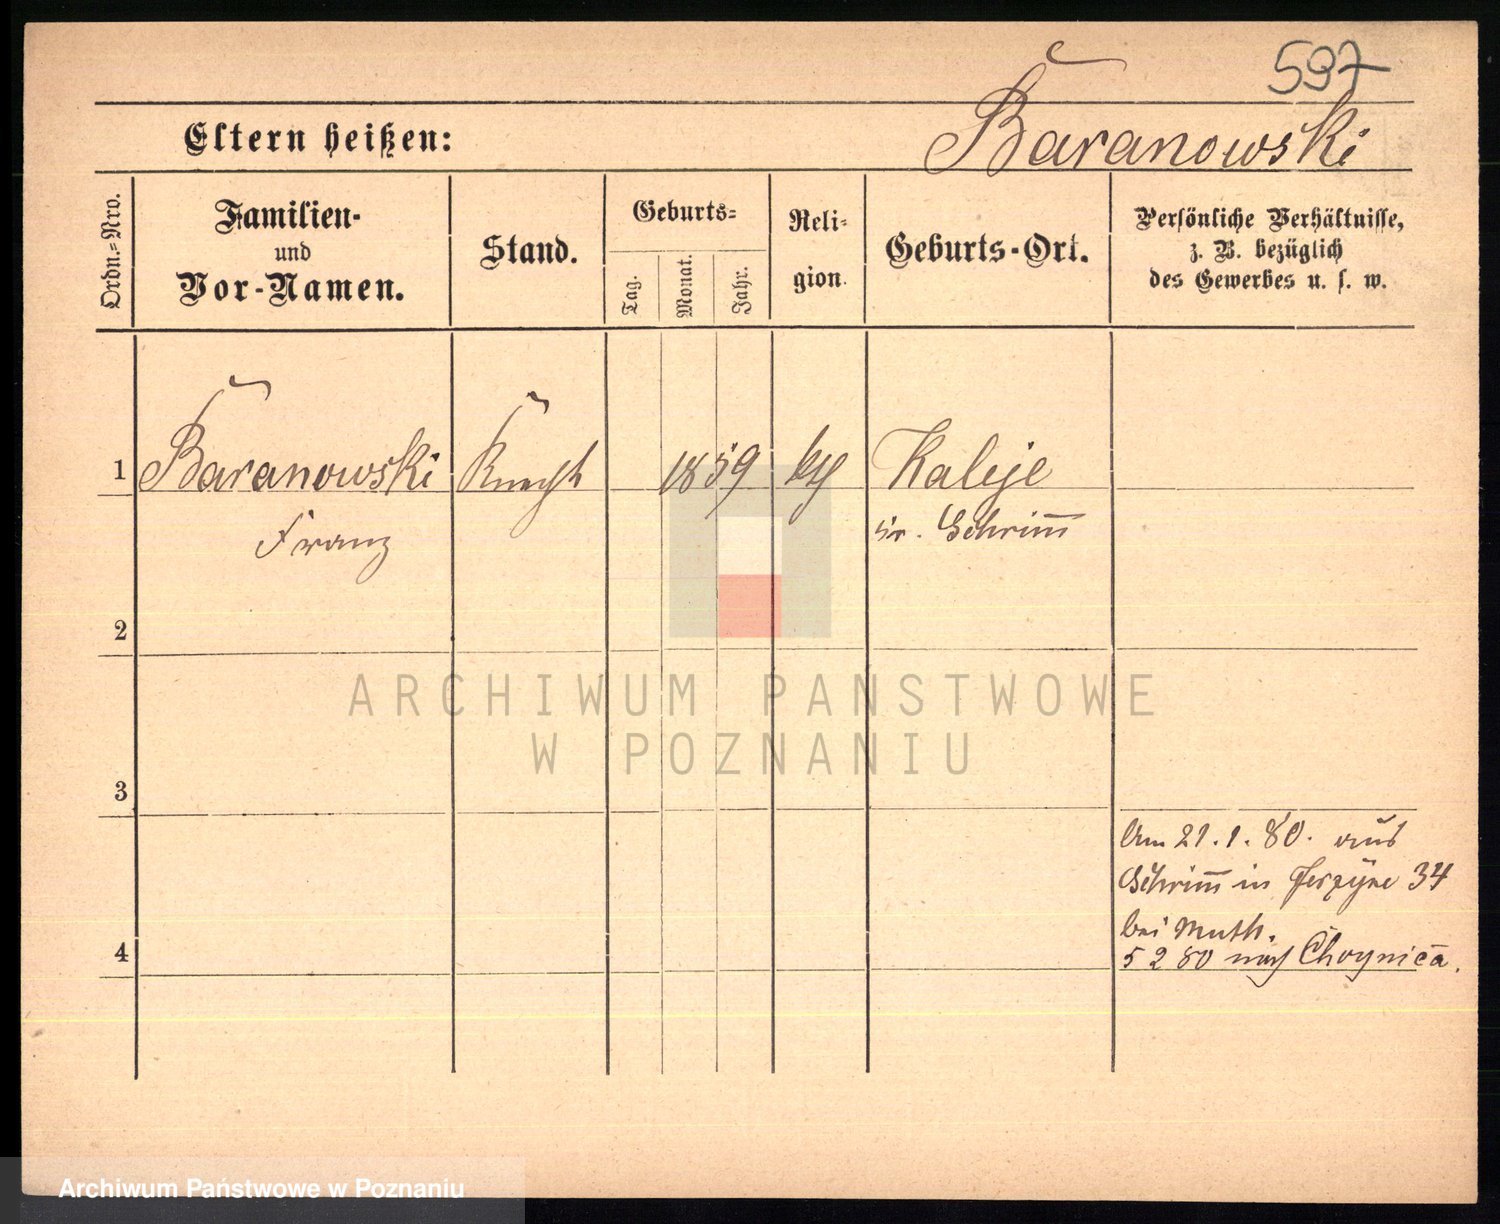 597
Eltern heißen:
Baranowski
Ordn.=Nro.
Familien-
und
Vor-Namen.
Stand.
Geburts=
Tag.
Monat.
Jahr.
Reli-
gion.
Geburts-Ort.
Persönliche Verhältnisse,
z. B. bezüglich
des Gewerbes u. s. w.
1
Baranowski
Franz
Knecht
1859
Kaleje
Kr. Schrim̅
2
3
4
Am 21.1.80. aus
Schrim̅ in Jerzyce 34
bei Muth.
5 2 80 nach Choynica.
ARCHIWUM PAŃSTWOWE
W POZNANIU
Archiwum Państwowe w Poznaniu